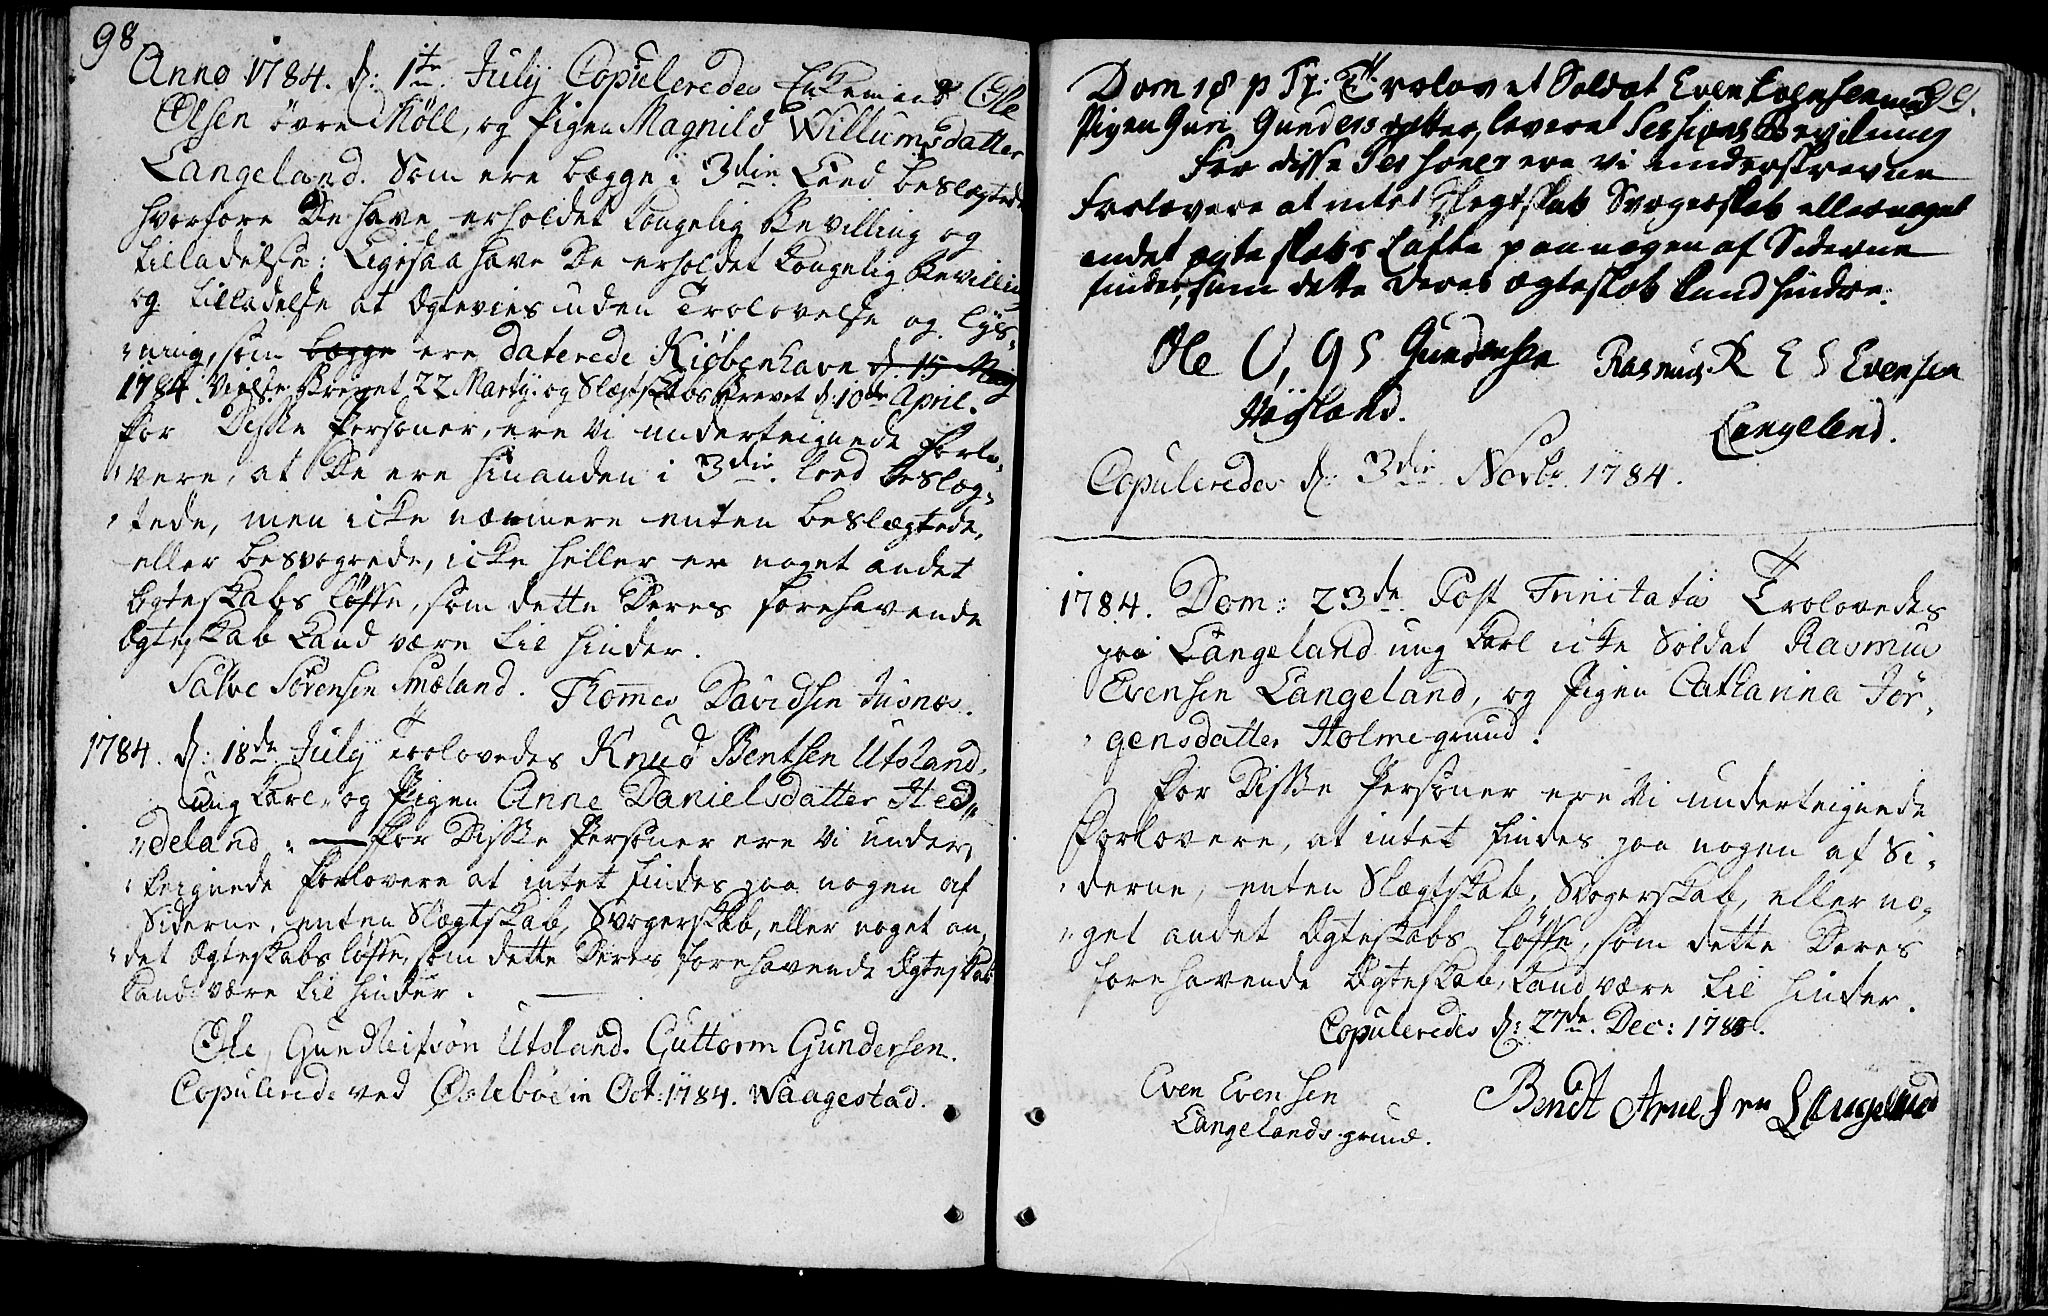 98
Anno 1784. d: 1te July Copuleredes Enkemand Ole
Olsen övre Möll, og Pigen Magnild Willumsdatter
Langeland. Som ere begge i 3die Leed beslegtede
hvorfore De have erholdet Kongelig Bevilling og
tilladelse: Ligesaa have De erholdet Kongelig Bevilling
og tilladelse at ægtevies uden Trolovelse og lys-
ning, som begge ere daterede Kiøbenhavn d 15 May
1784. Vielse Brevet 22 Martij. og Slegtskabs Brevet d: 10de April.
For Disse Personer, ere Vi underteignede Forlo-
vere, at De ere hinanden i 3die leed beslæg-
tede, men icke nærmere enten beslægtede,
eller besvogrede, icke heller er noget andet
Egteskabs løfte, som dette Deres forehavende
Egteskab kand være til hinder.
Salve Sörensen Smæland. Thomes Davidsen Jusnes.
1784. d: 18de July trolovedes Knud Bentsen Utsland,
ung karl, og Pigen Anne Danielsdatter Hed-
deland. — For Disse Personer ere Vi under-
teignede Forlovere at intet findes paa nogen af
Siderne, enten Slægtskab, Svogerskab, eller noget an-
det Egteskabs løfte, som dette Deres forehavende Egteskab
kand være til hinder.
Ole Gundleifsön Utsland. Guttorm Gundersen.
Copulerede ved Øslebøe in Oct: 1784. Waagestad.
99.
Dom 18 p Tr: Trolovet Soldat Even Evensen med
Pigen Guri Gundersdatter, leveret Sessions Bevilning
For disse Personer ere vi underskrevne
Forlovere at intet Slegtskab Svogerskab eller noget
andet egteskabs Løfte paa nogen af Siderne
findes, som dette deres ægteskab kand hindre.
Ole O, G S Gundersen Rasmus R E S Evensen
Högland. Langeland.
Copuleredes d: 3die Novbr. 1784.
1784. Dom: 23de Post Trinitatis Trolovedes
paa Langeland ung karl icke Soldat Rasmus
Evensen Langeland, og Pigen Catharina Jör-
gensdatter Holmegrund.
For Disse Personer ere Vi underteignede
Forlovere, at intet findes paa nogen af Si-
derne, enten Slægtskab, Svogerskab, eller no-
get andet Egteskabs løfte, som dette Deres
forehavende Egteskab, kand være til hinder.
Copuleredes d: 27de. Dec: 1784.
Even Evensen Bendt Arnesen Langeland
Langelandsgrund.